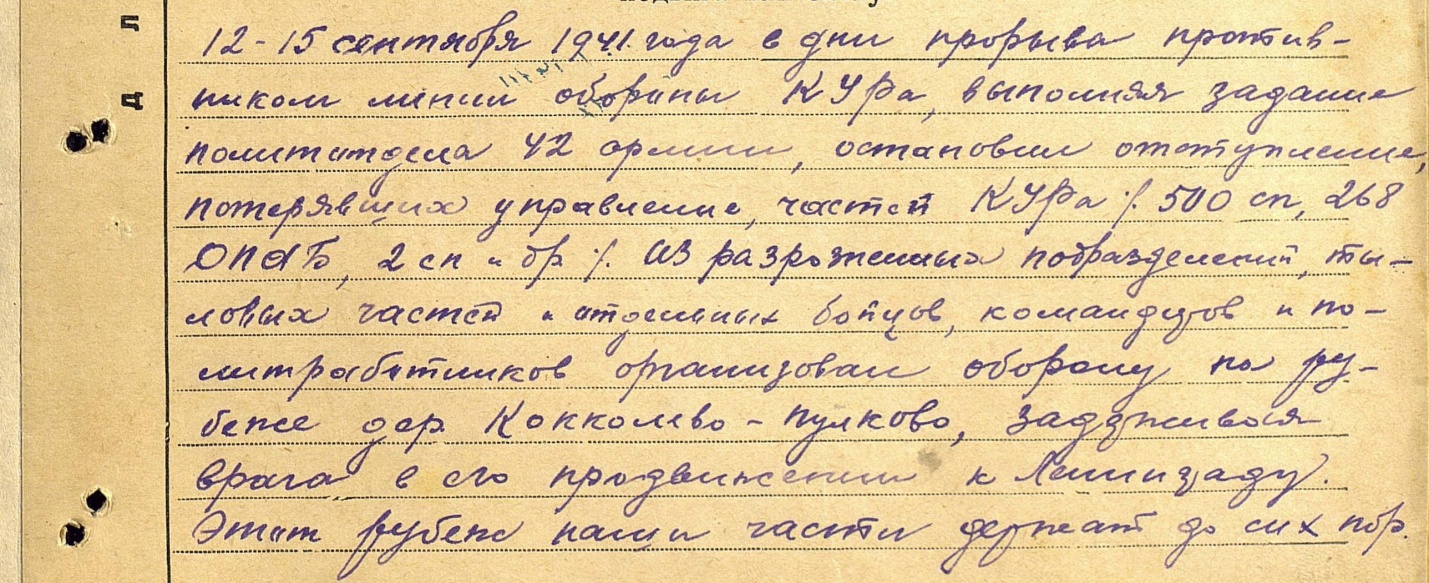 12-15 сентября 1941 года в дни прорыва против-
ником линии обороны КУРа, выполняя задание
политотдела 42 армии, остановил отступление,
потерявших управление, частей КУРа /. 500 сп, 268
ОПАБ, 2 сп и др /. Из разрозненных подразделений, ты-
ловых частей и отдельных бойцов, командиров и по-
литработников организовал оборону на ру-
беже дер. Кокколево - Пулково, задерживая
врага в его продвижении к Ленинграду.
Этот рубеж наши части держат до сих пор.